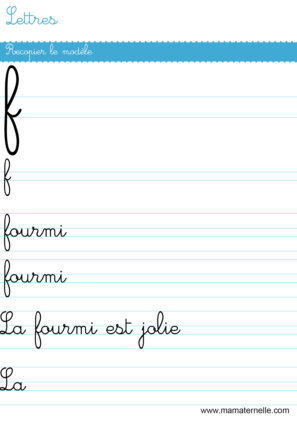 Lettres
Recopier le modèle
f
f
fourmi
fourmi
La fourmi est jolie
La
www.mamaternelle.com